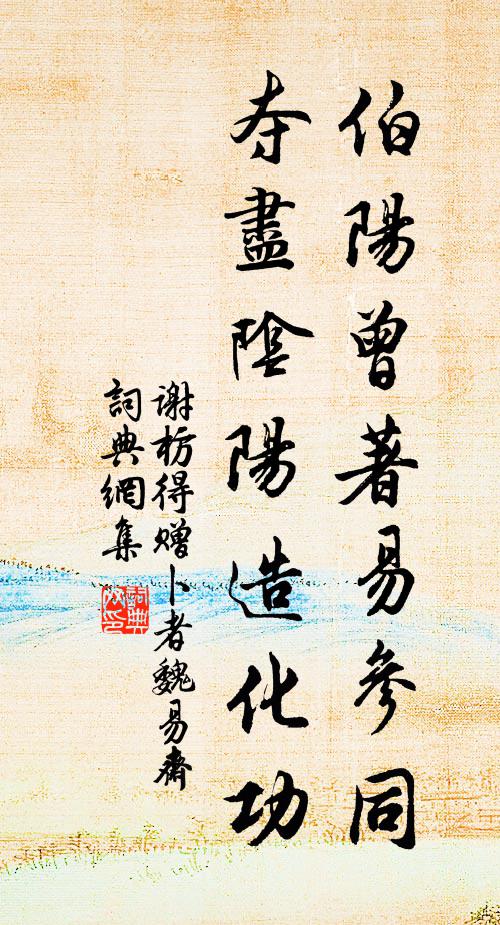 伯陽曾著易參同
夺盡陰陽造化功
谢枋得赠卜者魏易齋
詞典網集